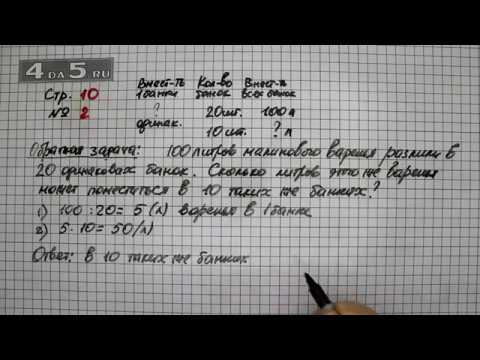 4 DA 5.RU
Стр. 10
№ 2
Вмест-ть Кол-во Вмест-ть
1 банки банок всех банок
? 20 шт. 100 л
одинак.
10 шт. ? л
Обратная задача: 100 литров малинового варенья разлили в
20 одинаковых банок. Сколько литров этого же варенья
может поместиться в 10 таких же банках?
1) 100 : 20 = 5 (л) варенья в 1 банке
2) 5 · 10 = 50 (л)
Ответ: в 10 таких же банках